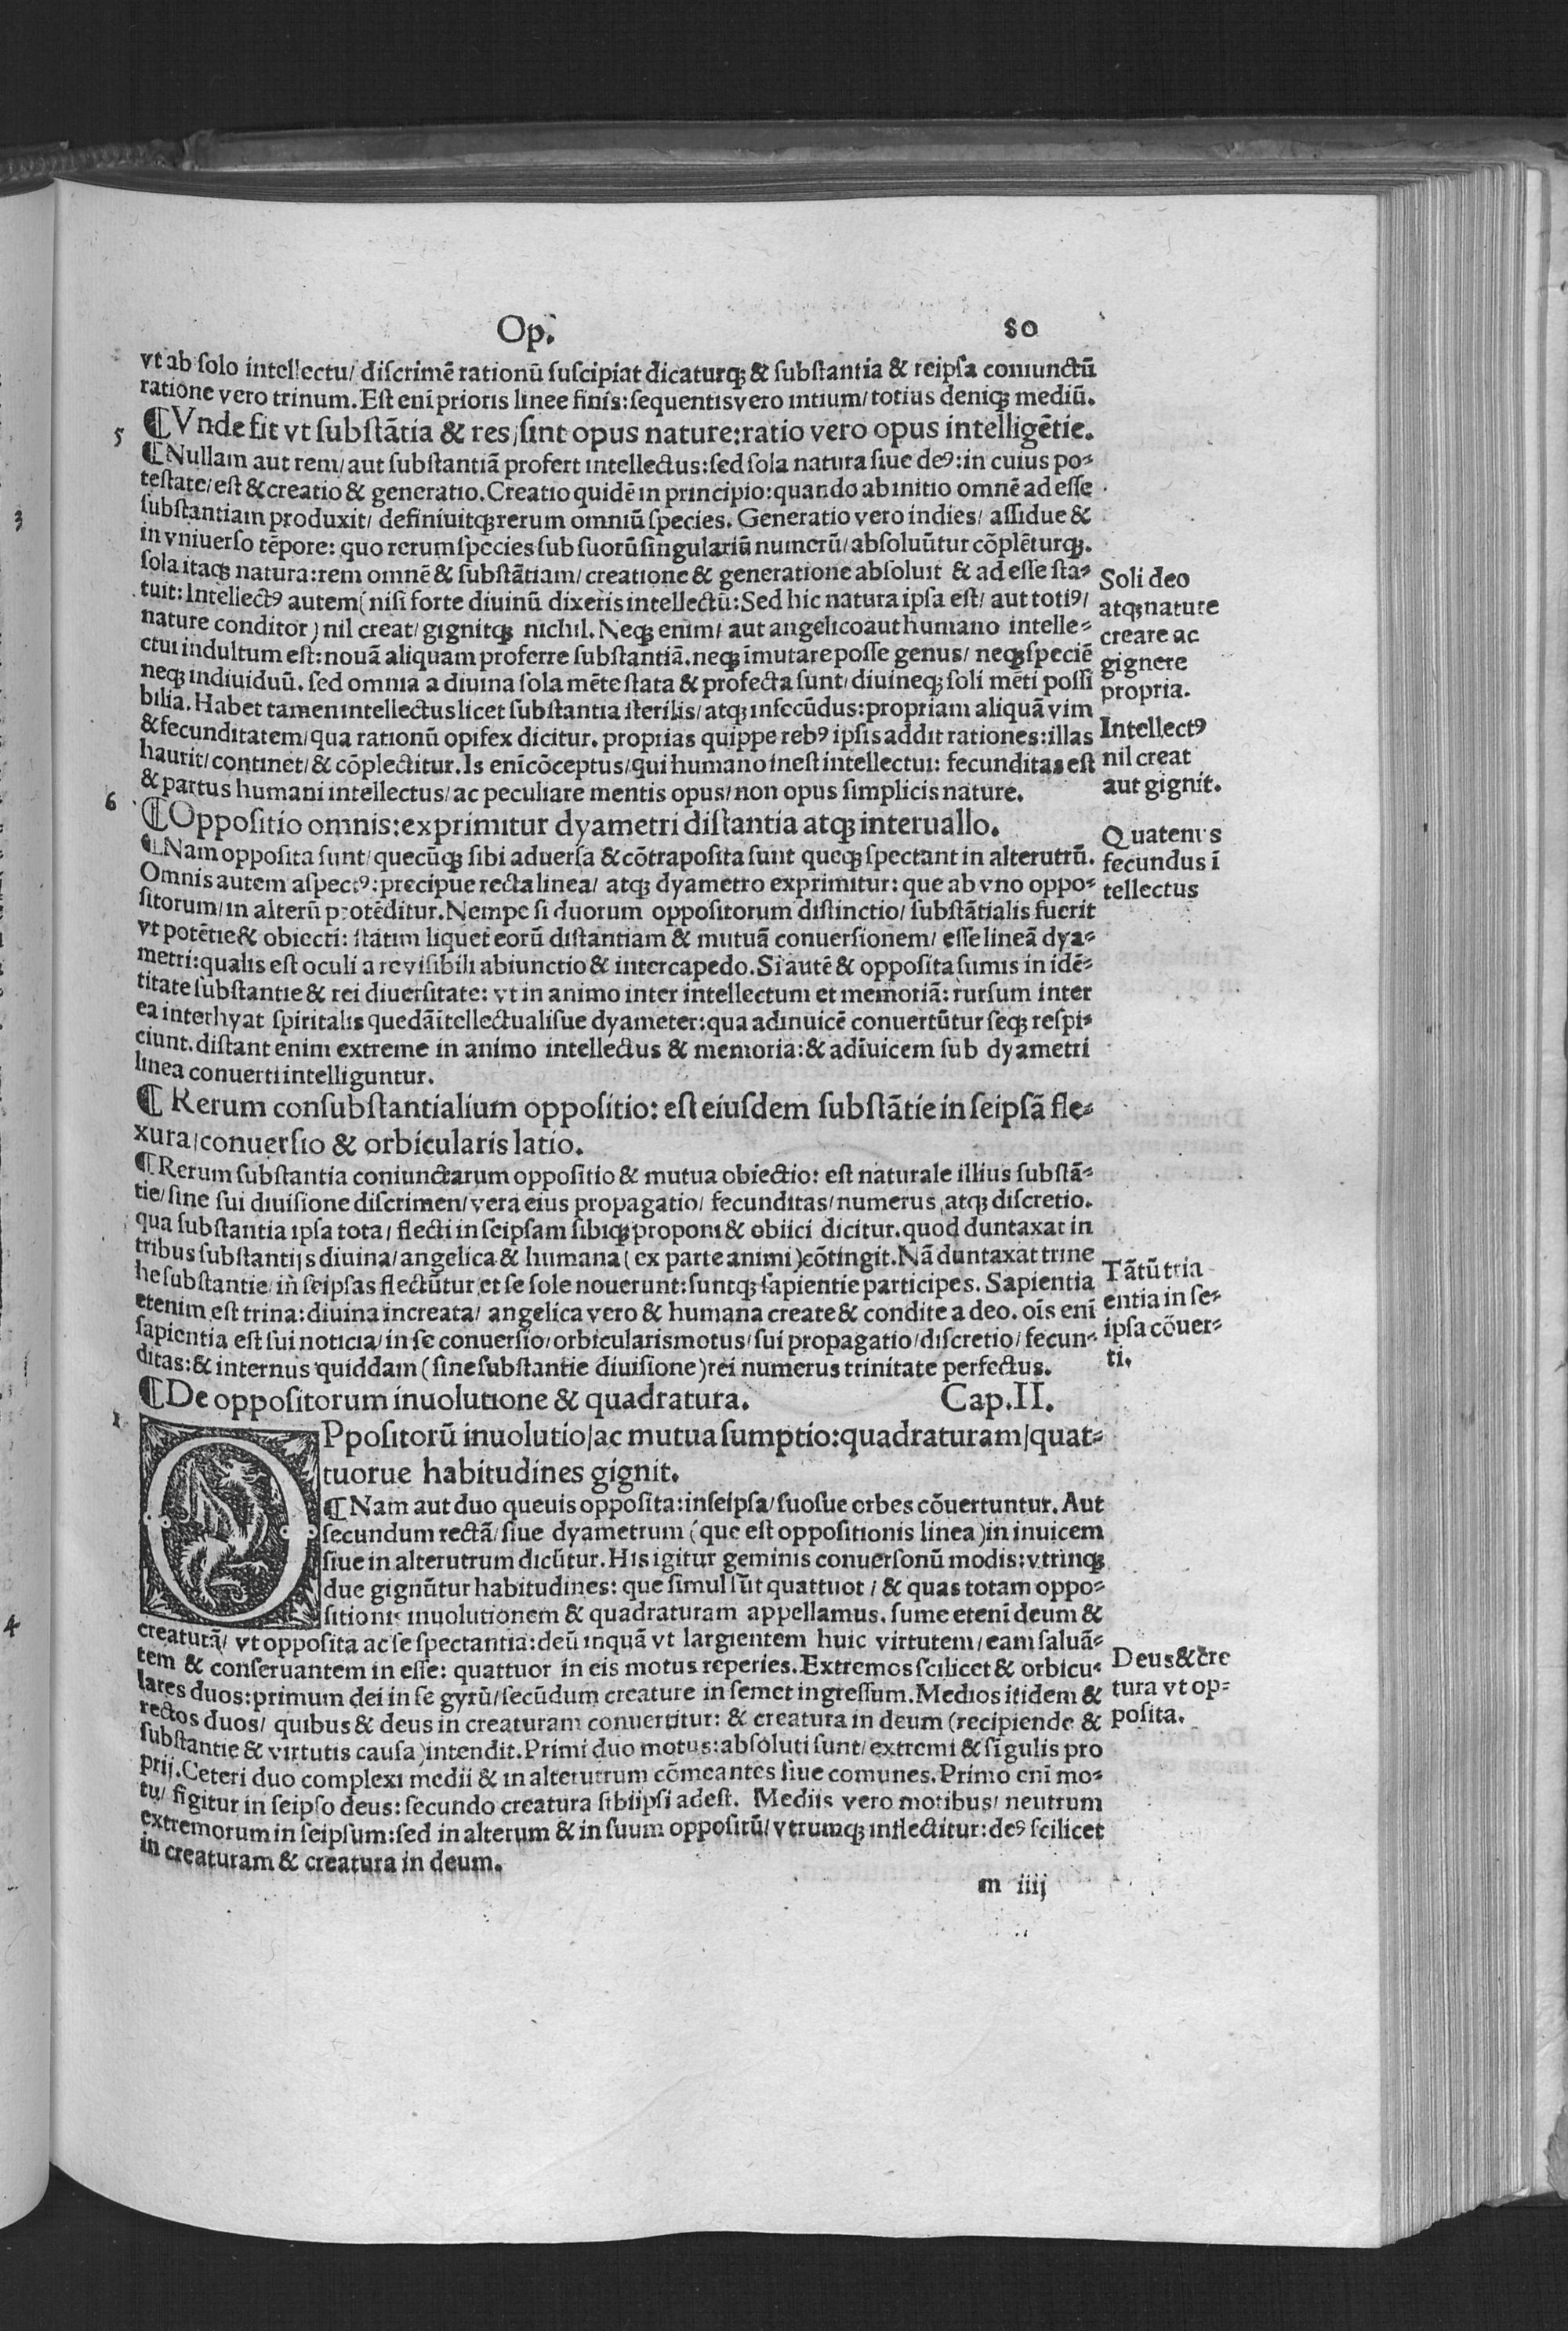 Op. 80
vt ab solo intellectu/ discrimē rationū suscipiat dicaturqꝫ & substantia & reipsa coniunctū
ratione vero trinum. Est eni prioris linee finis: sequentis vero initium/ totius deniqꝫ mediū.
5
¶ Vnde fit vt substātia & res/ sint opus nature: ratio vero opus intelligētie.
¶ Nullam aut rem/ aut substantiā profert intellectus: sed sola natura siue deꝰ: in cuius po-
testate/ est & creatio & generatio. Creatio quidē in principio: quando ab initio omnē ad esse
substantiam produxit/ definiuitqꝫ rerum omniū species. Generatio vero indies/ assidue &
in vniuerso tēpore: quo rerum species sub suorū singulariū numerū/ absoluūtur cōplēturqꝫ.
sola itaqꝫ natura: rem omnē & substātiam/ creatione & generatione absoluit & ad esse sta-
tuit: Intellectꝰ autem (nisi forte diuinū dixeris intellectū: Sed hic natura ipsa est/ aut totiꝰ/
nature conditor) nil creat/ gignitqꝫ nichil. Neqꝫ enim/ aut angelico aut humano intelle-
ctui indultum est: nouā aliquam proferre substantiā. neqꝫ īmutare posse genus/ neqꝫ speciē
neqꝫ indiuiduū. sed omnia a diuina sola mēte stata & profecta sunt/ diuineqꝫ soli mēti possi
bilia. Habet tamen intellectus licet substantia sterilis/ atqꝫ infecūdus: propriam aliquā vim
& fecunditatem/ qua rationū opifex dicitur. proprias quippe rebꝰ ipsis addit rationes: illas
haurit/ continet/ & cōplectitur. Is eni cōceptus/ qui humano inest intellectui: fecunditas est
& partus humani intellectus/ ac peculiare mentis opus/ non opus simplicis nature.
Soli deo
atqꝫ nature
creare ac
gignere
propria.
Intellectꝰ
nil creat
aut gignit.
6
¶ Oppositio omnis: exprimitur dyametri distantia atqꝫ interuallo.
¶ Nam opposita sunt/ quecūqꝫ sibi aduersa & cōtraposita sunt queqꝫ spectant in alterutrū.
Omnis autem aspectꝰ: precipue recta linea/ atqꝫ dyametro exprimitur: que ab vno oppo-
sitorum/ in alterū protēditur. Nempe si duorum oppositorum distinctio/ substātialis fuerit
vt potētie & obiecti: statim liquet eorū distantiam & mutuā conuersionem/ esse lineā dya-
metri: qualis est oculi a re visibili abiunctio & intercapedo. Si autē & opposita sumis in idē-
titate substantie & rei diuersitate: vt in animo inter intellectum et memoriā: rursum inter
ea interhyat spiritalis quedā ītellectualisue dyameter: qua adinuicē conuertūtur seqꝫ respi-
ciunt. distant enim extreme in animo intellectus & memoria: & adiuicem sub dyametri
linea conuerti intelliguntur.
Quatenus
fecundus ī
tellectus
¶ Rerum consubstantialium oppositio: est eiusdem substātie in seipsā fle-
xura/ conuersio & orbicularis latio.
¶ Rerum substantia coniunctarum oppositio & mutua obiectio: est naturale illius substā-
tie/ sine sui diuisione discrimen/ vera eius propagatio/ fecunditas/ numerus atqꝫ discretio.
qua substantia ipsa tota/ flecti in seipsam sibiqꝫ proponi & obiici dicitur. quod duntaxat in
tribus substantijs diuina/ angelica & humana (ex parte animi) cōtingit. Nā duntaxat trine
he substantie/ in seipsas flectūtur et se sole nouerunt: suntqꝫ sapientie participes. Sapientia
etenim est trina: diuina increata/ angelica vero & humana create & condite a deo. oīs eni
sapientia est sui noticia/ in se conuersio/ orbicularis motus/ sui propagatio/ discretio/ fecun-
ditas: & internus quiddam (sine substantie diuisione) rei numerus trinitate perfectus.
Tātū tria
entia in se-
ipsa cōuer-
ti.
¶ De oppositorum inuolutione & quadratura. Cap. II.
1
OPpositorū inuolutio/ ac mutua sumptio: quadraturam/ quat-
tuorue habitudines gignit.
¶ Nam aut duo queuis opposita: in seipsa/ suosue orbes cōuertuntur. Aut
secundum rectā/ siue dyametrum (que est oppositionis linea) in inuicem
siue in alterutrum dicūtur. His igitur geminis conuersonū modis: vtrinqꝫ
due gignūtur habitudines: que simul sūt quattuor/ & quas totam oppo-
sitionis inuolutionem & quadraturam appellamus. sume eteni deum &
creaturā/ vt opposita ac se spectantia: deū inquā vt largientem huic virtutem/ eam saluā-
tem & conseruantem in esse: quattuor in eis motus reperies. Extremos scilicet & orbicu-
lares duos: primum dei in se gyrū/ secūdum creature in semet ingressum. Medios itidem &
rectos duos/ quibus & deus in creaturam conuertitur: & creatura in deum (recipiende &
substantie & virtutis causa) intendit. Primi duo motus: absoluti sunt/ extremi & sīgulis pro
prij. Ceteri duo complexi medii & in alterutrum cōmeantes siue comunes. Primo eni mo-
tu/ figitur in seipso deus: secundo creatura sibiipsi adest. Mediis vero motibus/ neutrum
extremorum in seipsum: sed in alterum & in suum oppositū/ vtrumqꝫ inflectitur: deꝰ scilicet
in creaturam & creatura in deum.
Deus & cre
tura vt op-
posita.
m iiij
3
4